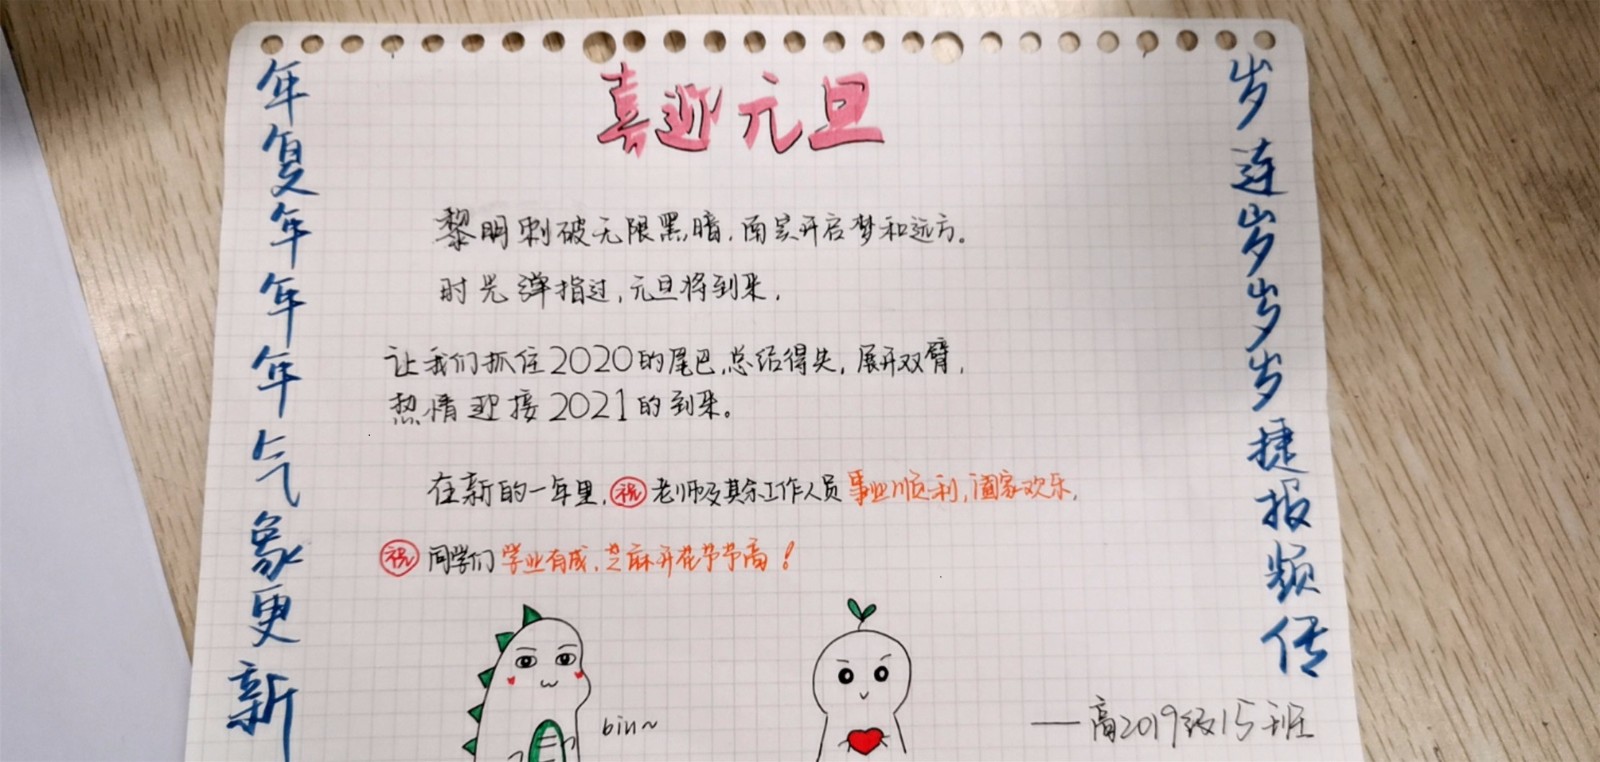 喜迎元旦
年复年年年气象更新
岁连岁岁岁捷报频传
黎明刺破无限黑暗,而会开启梦和远方。
时光弹指过,元旦将到来,
让我们抓住2020的尾巴,总结得失,展开双臂,
热情迎接2021的到来。
在新的一年里,祝老师及其余工作人员事业顺利,阖家欢乐,
祝同学们学业有成,芝麻开花节节高!
bin~
——高2019级15班